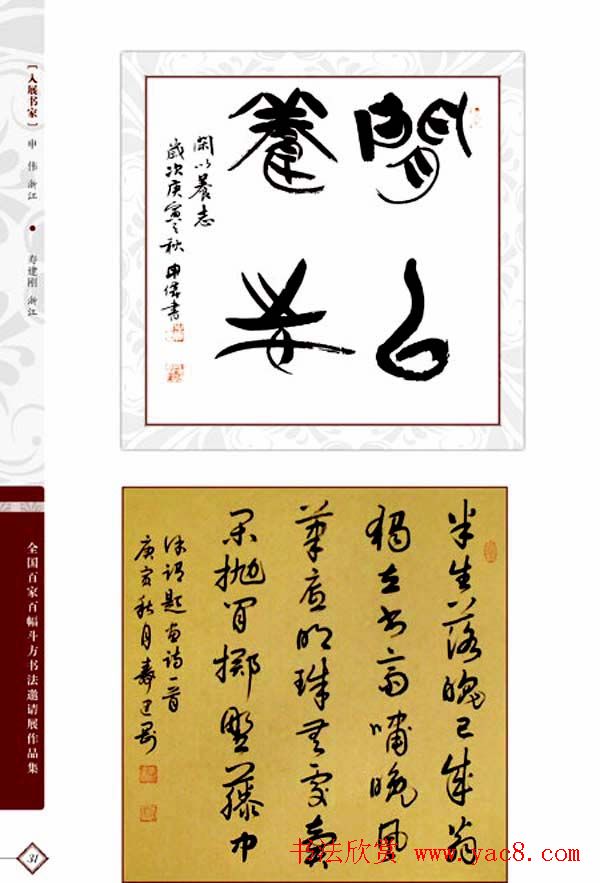 [入展书家] 申 伟 浙江 ● 寿建刚 浙江
全国百家百幅斗方书法邀请展作品集
31
閒以
養志
闲以養志
歲次庚寅之秋 申偉書
半生落魄已成翁
獨立书斋嘯晚風
筆底明珠無處賣
閒抛閒擲野藤中
徐渭题画诗一首
庚寅秋月壽建刚
书法欣赏 www.yac8.com